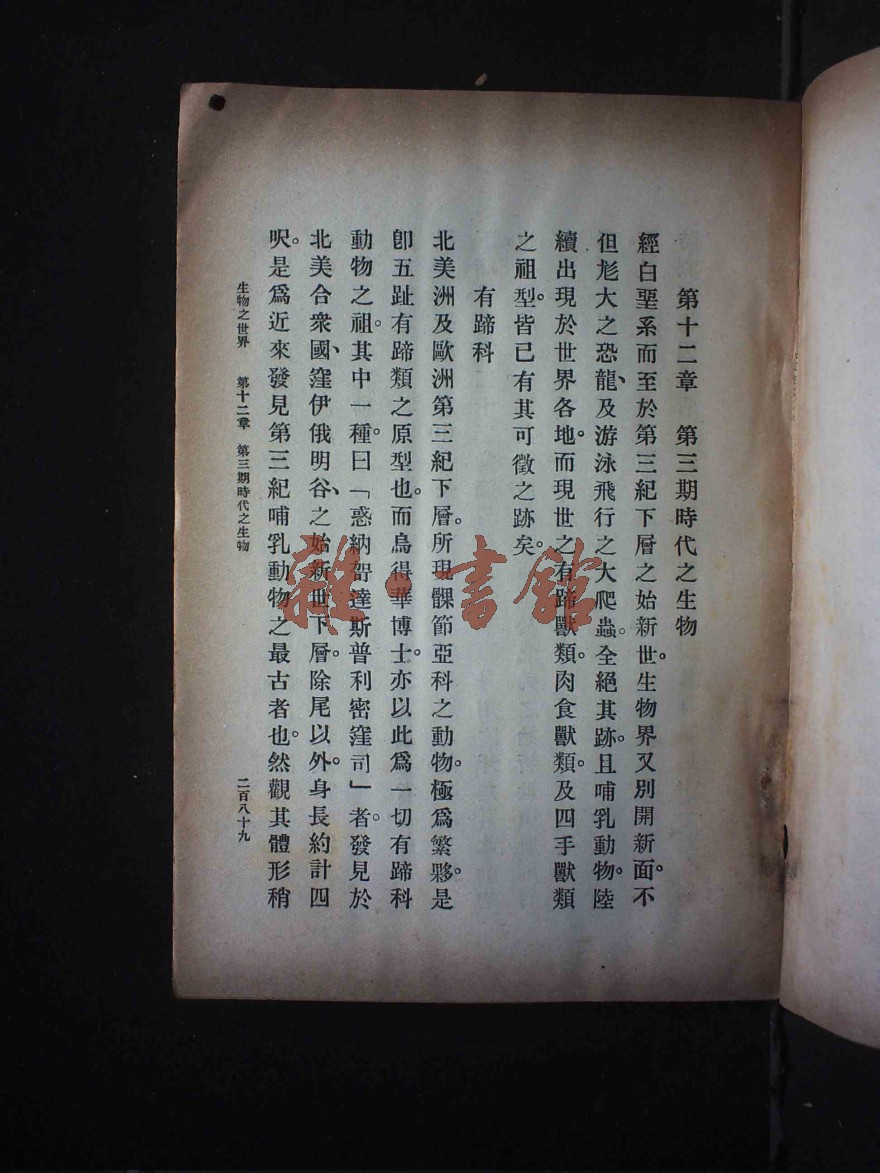 第十二章　第三期時代之生物
經白堊系而至於第三紀下層之始新世。生物界又別開新面。不
但尨大之恐龍、及游泳飛行之大爬蟲。全絕其跡。且哺乳動物。陸
續出現於世界各地。而現世之有蹄獸類。肉食獸類。及四手獸類
之祖型。皆已有其可徵之跡矣。
有蹄科
北美洲及歐洲第三紀下層。所現髁節亞科之動物。極爲繁夥。是
卽五趾有蹄類之原型也。而鳥得華博士。亦以此爲一切有蹄科
動物之祖。其中一種。曰「惑納哿達斯普利密窪司」者。發見於
北美合衆國、窪伊俄明谷、之始新世下層。除尾以外。身長約計四
呎。是爲近來發見第三紀哺乳動物之最古者也。然觀其體形稍
生物之世界　第十二章　第三期時代之生物　二百八十九
雜·書館